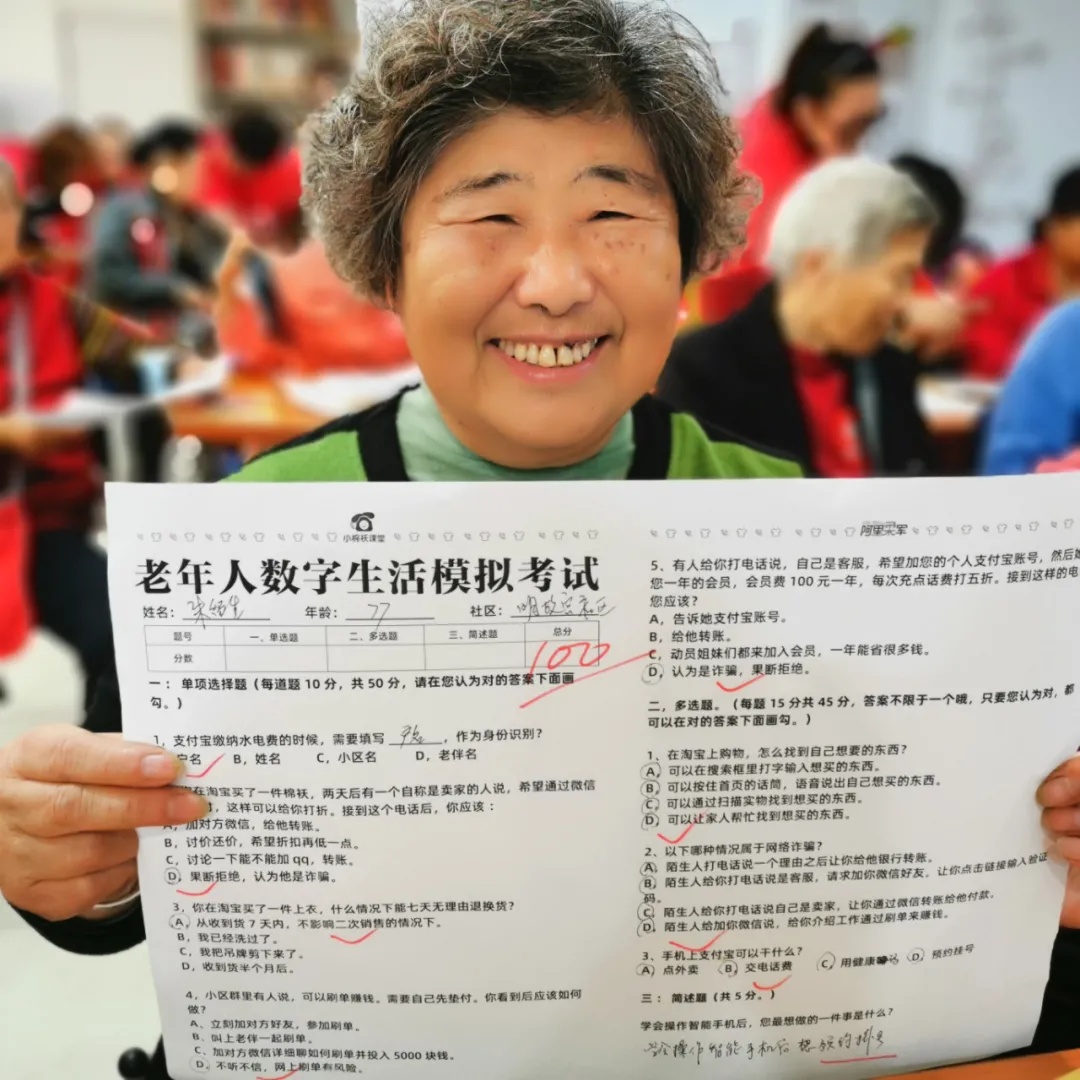 小棉袄课堂
老年人数字生活模拟考试
姓名: 年龄: 77 社区:
题号 一、单选题 二、多选题 三、简述题 总分
分数 100
一：单项选择题（每道题 10 分，共 50 分，请在您认为对的答案下面画
勾。）
1，支付宝缴纳水电费的时候，需要填写 ，作为身份识别？
户名 B，姓名 C，小区名 D，老伴名
在淘宝买了一件棉袄，两天后有一个自称是卖家的人说，希望通过微信
时，这样可以给你打折。接到这个电话后，你应该：
A，加对方微信，给他转账。
B，讨价还价，希望折扣再低一点。
C，讨论一下能不能加 qq，转账。
D，果断拒绝，认为他是诈骗。
3，你在淘宝买了一件上衣，什么情况下能七天无理由退换货？
A，从收到货 7 天内，不影响二次销售的情况下。
B，我已经洗过了。
C，我把吊牌剪下来了。
D，收到货半个月后。
4，小区群里有人说，可以刷单赚钱。需要自己先垫付。你看到后应该如何
做？
A、立刻加对方好友，参加刷单。
B、叫上老伴一起刷单。
C、加对方微信详细聊如何刷单并投入 5000 块钱。
D、不听不信，网上刷单有风险。
5，有人给你打电话说，自己是客服，希望加您的个人支付宝账号，然后
您一年的会员，会员费 100 元一年，每次充点话费打五折。接到这样的电
您应该？
A，告诉她支付宝账号。
B，给他转账。
C，动员姐妹们都来加入会员，一年能省很多钱。
D，认为是诈骗，果断拒绝。
二，多选题。（每题 15 分共 45 分，答案不限于一个哦，只要您认为对，都
可以在对的答案下面画勾。）
1，在淘宝上购物，怎么找到自己想要的东西？
A，可以在搜索框里打字输入想买的东西。
B，可以按住首页的话筒，语音说出自己想买的东西。
C，可以通过扫描实物找到想买的东西。
D，可以让家人帮忙找到想买的东西。
2，以下哪种情况属于网络诈骗？
A，陌生人打电话说一个理由之后让你给他银行转账。
B，陌生人给你打电话说是客服，请求加你微信好友，让你点击链接输入验证
码。
C，陌生人给你打电话说自己是卖家，让你通过微信转账给他付款。
D，陌生人给你加你微信说，给你介绍工作通过刷单来赚钱。
3，手机上支付宝可以干什么？
A）点外卖 B，交电话费 C，用健康 D，预约挂号
三：简述题（共 5 分。）
学会操作智能手机后，您最想做的一件事是什么？
学会操作智能手机后想预约挂号